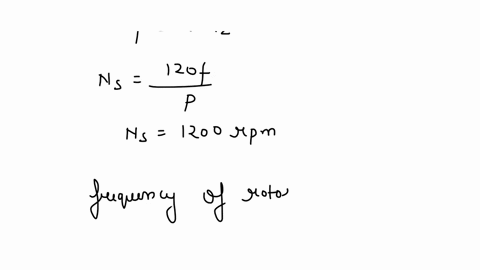 Ns = 120f / P
Ns = 1200 rpm
frequency of roto